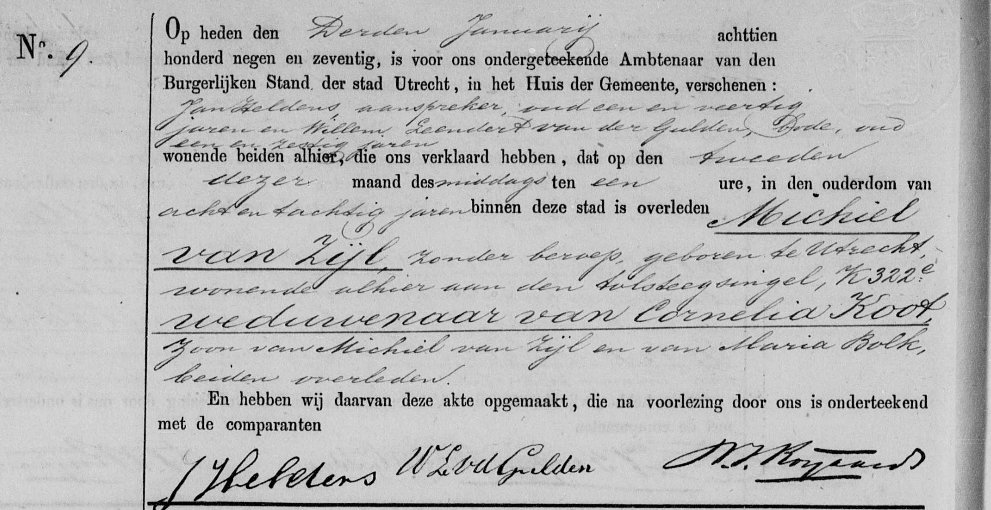 Nr. 9
Op heden den Derden Januarij achttien
honderd negen en zeventig, is voor ons ondergeteekende Ambtenaar van den
Burgerlijken Stand der stad Utrecht, in het Huis der Gemeente, verschenen:
Jan Heldens, aanspreker, oud een en veertig
jaren en Willem Leendert van der Gulden, Bode, oud
een en zestig jaren
wonende beiden alhier, die ons verklaard hebben, dat op den tweeden
dezer maand des middags ten een ure, in den ouderdom van
acht en tachtig jaren binnen deze stad is overleden Michiel
van Zijl, zonder beroep, geboren te Utrecht,
wonende alhier aan den tolsteegsingel, K 322e
weduwenaar van Cornelia Koot,
Zoon van Michiel van Zijl en van Maria Bolk,
beiden overleden.
En hebben wij daarvan deze akte opgemaakt, die na voorlezing door ons is onderteekend
met de comparanten
J Heldens W L vd Gulden